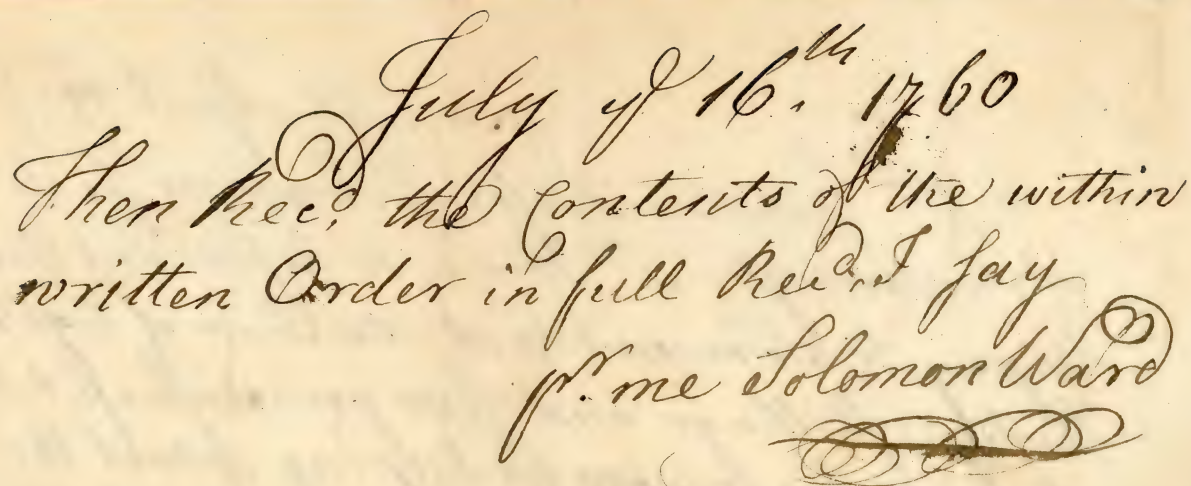 July ye 16.th 1760
Then Recd. the Contents of the within
written Order in full Recd. I say
pr. me Solomon Ward